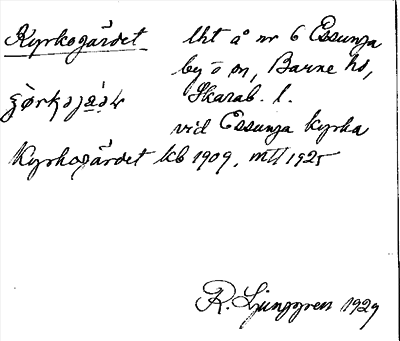 Kyrkogärdet lht å nr 6 Essunga
by o sn, Barne hd,
Skarab. l.
vid Essunga kyrka
Kyrkogärdet kb 1909, mtl 1925
R. Ljunggren 1929